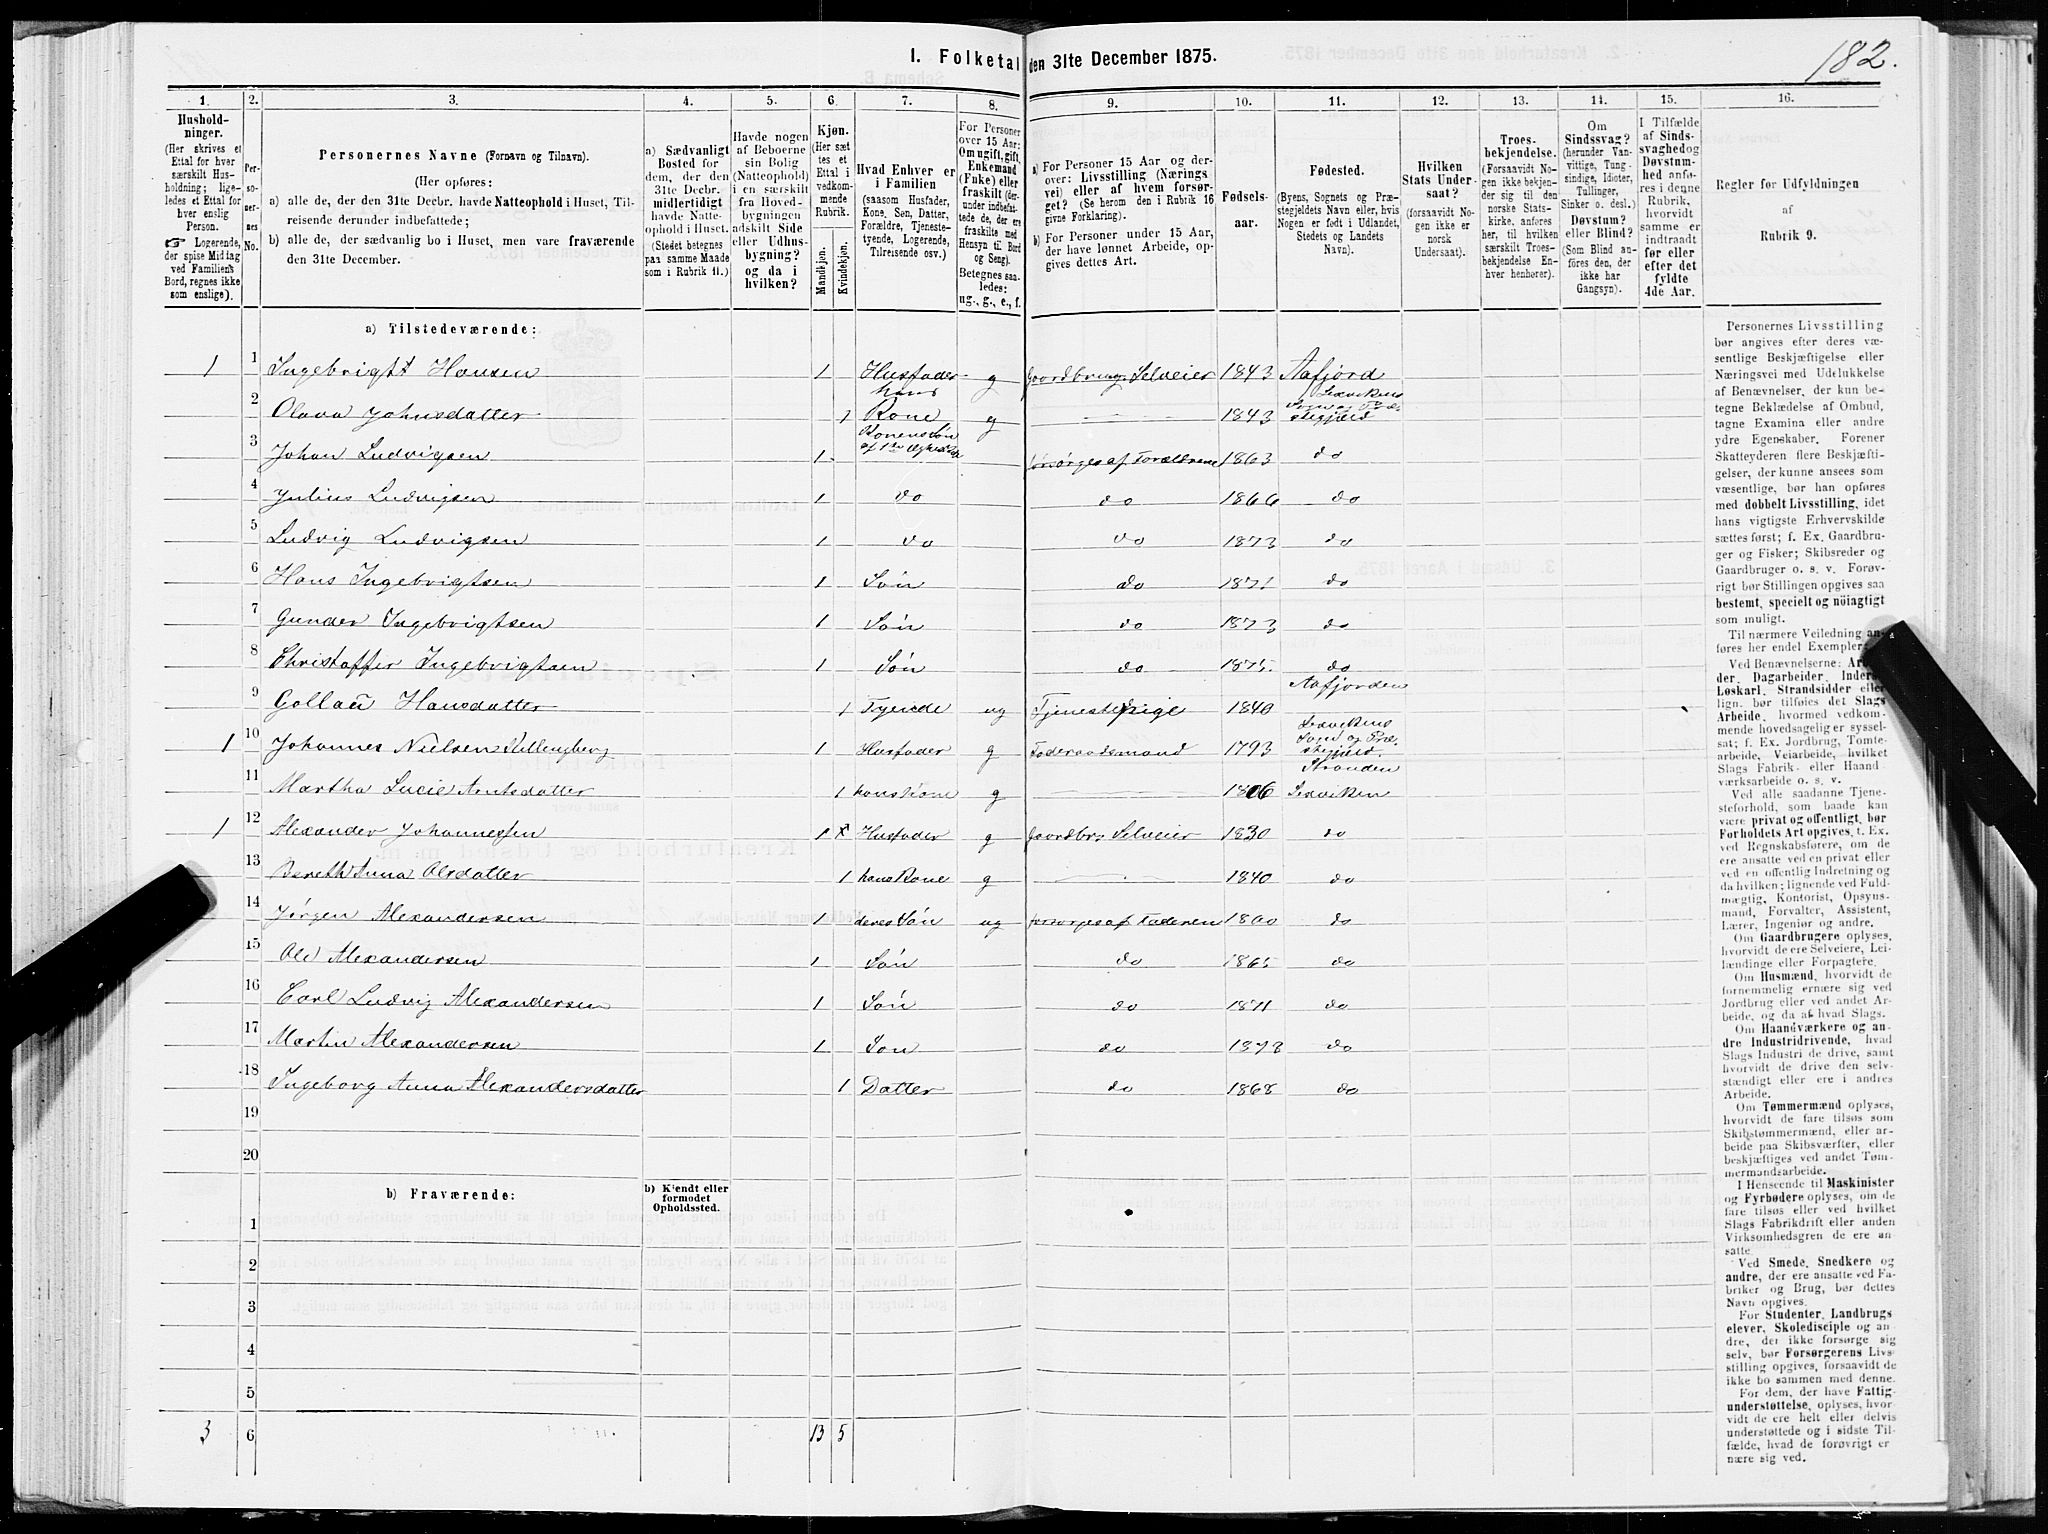 I. Folketal den 31te December 1875.
182.
1. 2. 3. 4. 5. 6. 7. 8. 9. 10. 11. 12. 13. 14. 15. 16.
Hushold-
ninger.
(Her skrives et
Ettal for hver
særskilt Hus-
holdning; lige-
ledes et Ettal for
hver enslig
Person.
☞ Logerende,
der spise Middag
ved Familiens
Bord, regnes ikke
som enslige).
Per-
so-
ner-
nes
No.
Personernes Navne (Fornavn og Tilnavn).
(Her opføres:
a) alle de, der den 31te Decbr. havde Natteophold i Huset, Til-
reisende derunder indbefattede;
b) alle de, der sædvanlig bo i Huset, men vare fraværende
den 31te December.
a) Sædvanligt
Bosted for
dem, der den
31te Decbr.
midlertidigt
havde Natte-
ophold i Huset.
(Stedet betegnes
paa samme Maade
som i Rubrik 11.)
Havde nogen
af Beboerne
sin Bolig
(Natteophold)
i en særskilt
fra Hoved-
bygningen
adskilt Side
eller Udhus-
bygning?
og da i
hvilken?
Kjøn.
(Her sæt-
tes et
Ettal i
vedkom-
mende
Rubrik.
Mandkjøn.
Kvindekjøn.
Hvad Enhver er
i Familien
(saasom Husfader,
Kone, Søn, Datter,
Forældre, Tjeneste-
tyende, Logerende,
Tilreisende osv.)
For Personer
over 15 Aar:
Om ugift, gift,
Enkemand
(Enke) eller
fraskilt (der-
under indbefat-
tede de, der ere
fraskilte med
Hensyn til Bord
og Seng).
Betegnes saa-
ledes:
ug., g., e., f.
a) For Personer 15 Aar og der-
over: Livsstilling (Nærings-
vei) eller af hvem forsør-
get? (Se herom den i Rubrik 16
givne Forklaring).
b) For Personer under 15 Aar,
der have lønnet Arbeide, op-
gives dettes Art.
Fødsels-
aar.
Fødested.
(Byens, Sognets og Præ-
stegjeldets Navn eller, hvis
Nogen er født i Udlandet,
Stedets og Landets
Navn).
Hvilken
Stats Under-
saat?
(forsaavidt No-
gen ikke er
norsk
Undersaat).
Troes-
bekjendelse.
(Forsaavidt No-
gen ikke bekjen-
der sig til den
norske Stats-
kirke, anføres
her, til hvilken
særskilt Troes-
bekjendelse En-
hver henhører).
Om
Sindssvag?
(herunder Van-
vittige, Tung-
sindige, Idioter,
Tullinger,
Sinker o. desl.)
Døvstum?
eller Blind?
(Som Blind an-
føres den, der
ikke har
Gangsyn).
I Tilfælde
af Sinds-
svaghed og
Døvstum-
hed anfø-
res i denne
Rubrik,
hvorvidt
samme er
indtraadt
før eller
efter det
fyldte
4de Aar.
Regler for Udfyldningen
af
Rubrik 9.
a) Tilstedeværende:
1 1 Ingebrigt Hansen 1 Husfader g Gaardbrug, Selveier 1843 Aafjord
2 Olava Johnsdatter 1 hans Kone g 1843 Lexvikens Sogn og Præstegjeld
3 Johan Ludvigsen 1 Konens Søn af 1ste Ægteskab forsørges af Forældrene 1863 do
4 Julius Ludvigsen 1 do do 1866 do
5 Ludvig Ludvigsen 1 do do 1873 do
6 Hans Ingebrigtsen 1 Søn do 1871 do
7 Gunder Ingebrigtsen 1 Søn do 1873 do
8 Christoffer Ingebrigtsen 1 Søn do 1875 do
9 Hansdatter 1 Tyende ug Tjenestepige 1840 Aafjorden
1 10 Johannes Nielsen 1 Husfader g Føderaadsmand 1793 Lexvikens Sogn og Præstegjeld
11 Martha Lucie Arntsdatter 1 hans Kone g 1806 Stranden Lexviken
1 12 Alexander Johannessen 1 Husfader g Gaardbr. Selveier 1830 do
13 Bereth Anna Olsdatter 1 hans Kone g 1840 do
14 Jørgen Alexandersen 1 deres Søn ug forsørges af Faderen 1860 do
15 Ole Alexandersen 1 Søn do 1865 do
16 Carl Ludvig Alexandersen 1 Søn do 1871 do
17 Martin Alexandersen 1 Søn do 1873 do
18 Ingeborg Anna Alexandersdatter 1 Datter do 1868 do
19
20
b) Fraværende:
b) Kjendt eller
formodet
Opholdssted.
1
2
3
4
5
3 6 13 5
Personernes Livsstilling
bør angives efter deres væ-
sentlige Beskjæftigelse eller
Næringsvei med Udelukkelse
af Benævnelser, der kun be-
tegne Beklædelse af Ombud,
tagne Examina eller andre
ydre Egenskaber. Forener
Skatteyderen flere Beskjæfti-
gelser, der kunne ansees som
væsentlige, bør han opføres
med dobbelt Livsstilling, idet
hans vigtigste Erhvervskilde
sættes først; f. Ex. Gaardbru-
ger og Fisker; Skibsreder og
Gaardbruger o. s. v. Forøv-
rigt bør Stillingen opgives saa
bestemt, specielt og nöiagtigt
som muligt.
Til nærmere Veiledning an-
føres her endel Exempler:
Ved Benævnelserne:
der, Dagarbeider,
Løskarl, Strandsidder eller
lign. bør tilføies det Slags
Arbeide, hvormed vedkom-
mende hovedsagelig er syssel-
sat; f. Ex. Jordbrug, Tomte-
arbeide, Veiarbeide, hvilket
Slags Fabrik- eller Haand-
værksarbeide o. s. v.
Ved alle saadanne Tjene-
steforhold, som baade kan
være privat og offentligt, bør
Forholdets Art opgives, t. Ex.
ved Regnskabsførere, om de
ere ansatte ved en privat eller
ved en offentlig Indretning og
da hvilken; lignende ved Fuld-
mægtig, Kontorist, Opsyns-
mand, Forvalter, Assistent,
Lærer, Ingeniør og andre.
Om Gaardbrugere oplyses,
hvorvidt de ere Selveiere, Lei-
lændinge eller Forpagtere.
Om Husmænd, hvorvidt de
fornemmelig ernære sig ved
Jordbrug eller ved andet Ar-
beide, og da af hvad Slags.
Om Haandværkere og an-
dre Industridrivende, hvad
Slags Industri de drive, samt
hvorvidt de drive den selv-
stændigt eller ere i andres
Arbeide.
Om Tømmermænd oplyses,
hvorvidt de fare tilsøs som
Skibstømmermænd, eller ar-
beide paa Skibsværfter, eller
beskjæftiges ved andet Tøm-
mermandsarbeide.
I Henseende til Maskinister
og Fyrbødere oplyses, om de
fare tilsøs eller ved hvilket
Slags Fabrikdrift eller anden
Virksomhedsgren de ere an-
satte.
Ved Smede, Snedkere og
andre, der ere ansatte ved Fa-
briker og Brug, bør dettes
Navn opgives.
For Studenter, Landbrugs-
elever, Skoledisciple og an-
dre, der ikke forsørge sig
selv, bør Forsørgerens Livs-
stilling opgives, forsaavidt de
ikke bo sammen med denne.
For dem, der have Fattig-
understøttelse, oplyses, hvor-
vidt de ere helt eller delvis
understøttede og i sidste Til-
fælde, hvad de forøvrigt er-
nære sig ved.